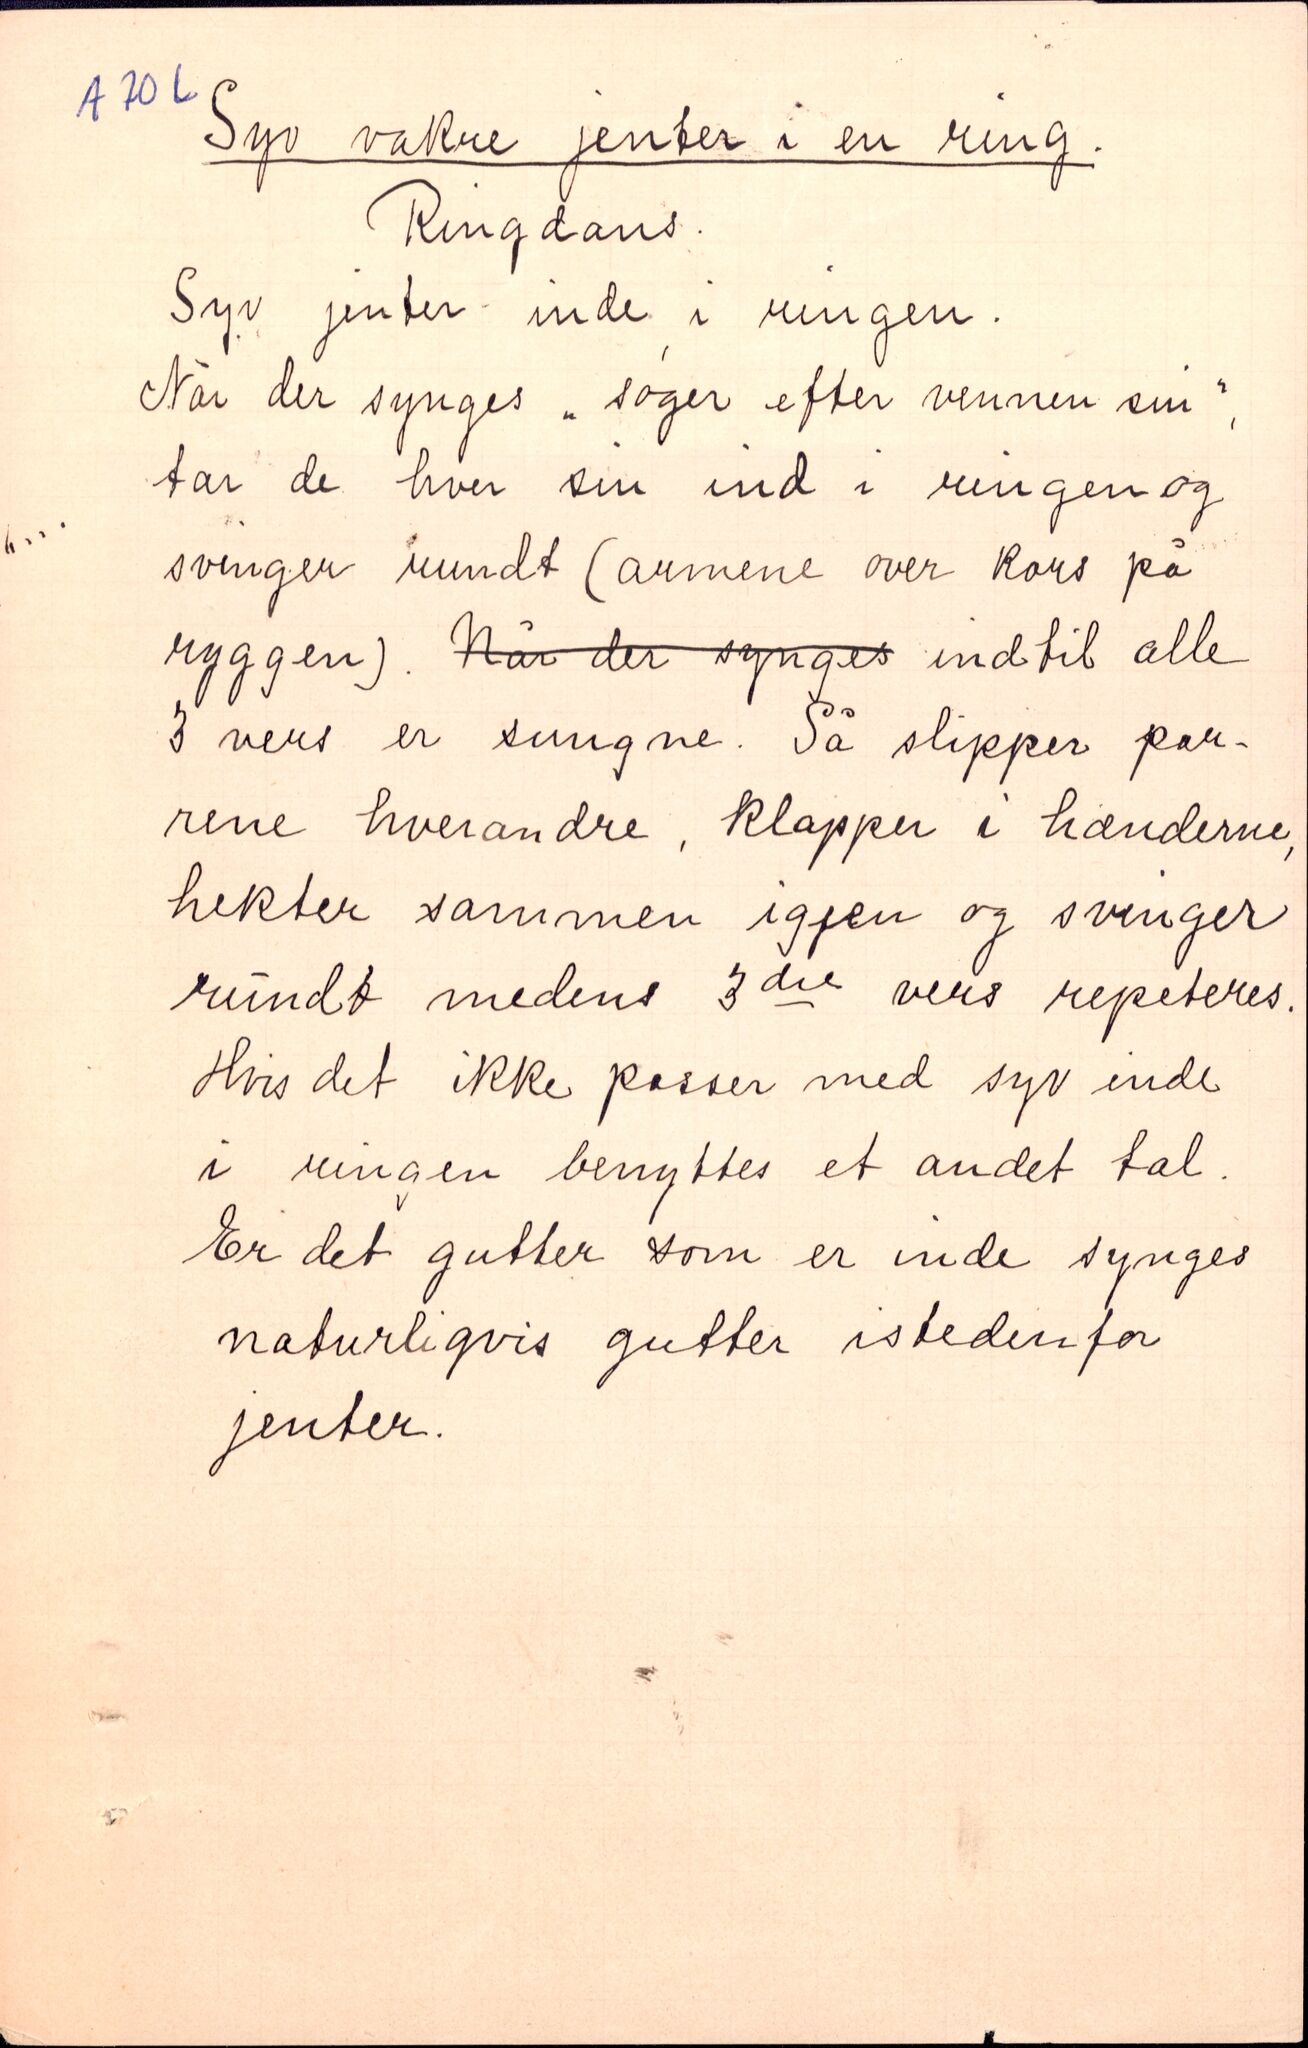 A 70 b
Syv vakre jenter i en ring.
Ringdans.
Syv jenter inde i ringen.
Når der synges „søger efter vennen sin“,
tar de hver sin ind i ringen og
svinger rundt (armene over kors på
ryggen). Når der synges indtil alle
3 vers er sungne. Så slipper par-
rene hverandre, klapper i hænderne,
hekter sammen igjen og svinger
rundt medens 3die vers repeteres.
Hvis det ikke passer med syv inde
i ringen benyttes et andet tal.
Er det gutter som er inde synges
naturligvis gutter istedenfor
jenter.